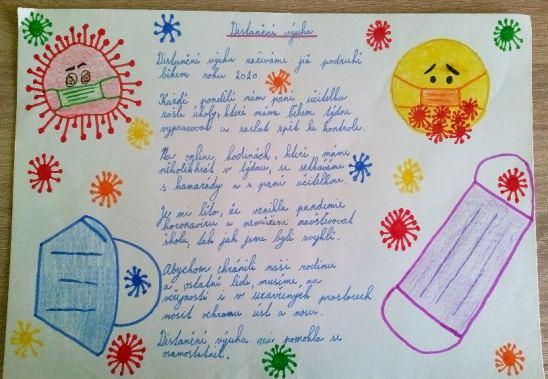 Distanční výuka
Distanční výuku zažíváme již podruhé
během roku 2020.
Každé pondělí nám paní učitelka
zašle úkoly, které máme během týdne
vypracovat a zaslat zpět ke kontrole.
Na online hodinách, které máme
několikrát v týdnu, se setkáváme
s kamarády a s paní učitelkou.
Je mi líto, že vznikla pandemie
koronaviru a nemůžeme navštěvovat
školu, tak jak jsme byli zvyklí.
Abychom chránili naši rodinu
a ostatní lidi, musíme na
veřejnosti i v uzavřených prostorech
nosit ochranu úst a nosu.
Distanční výuka mi pomohla se
osamostatnit.